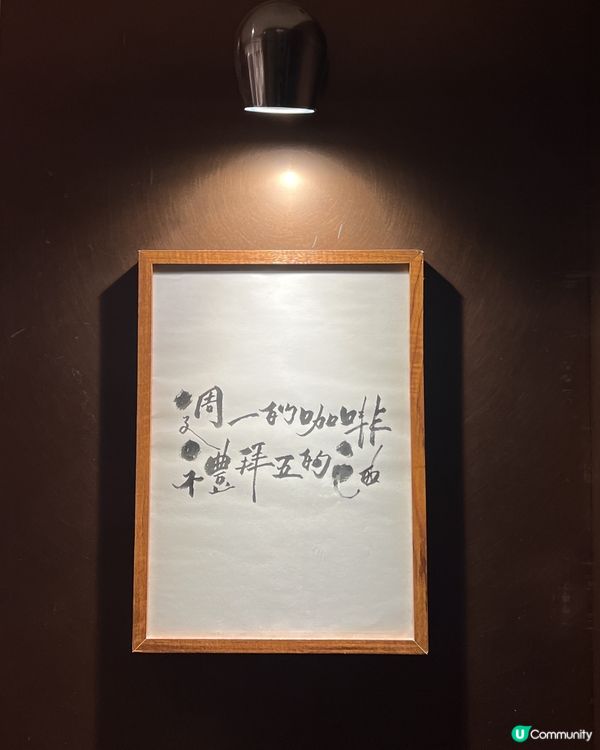 週一的咖啡
禮拜五的酒
U Community